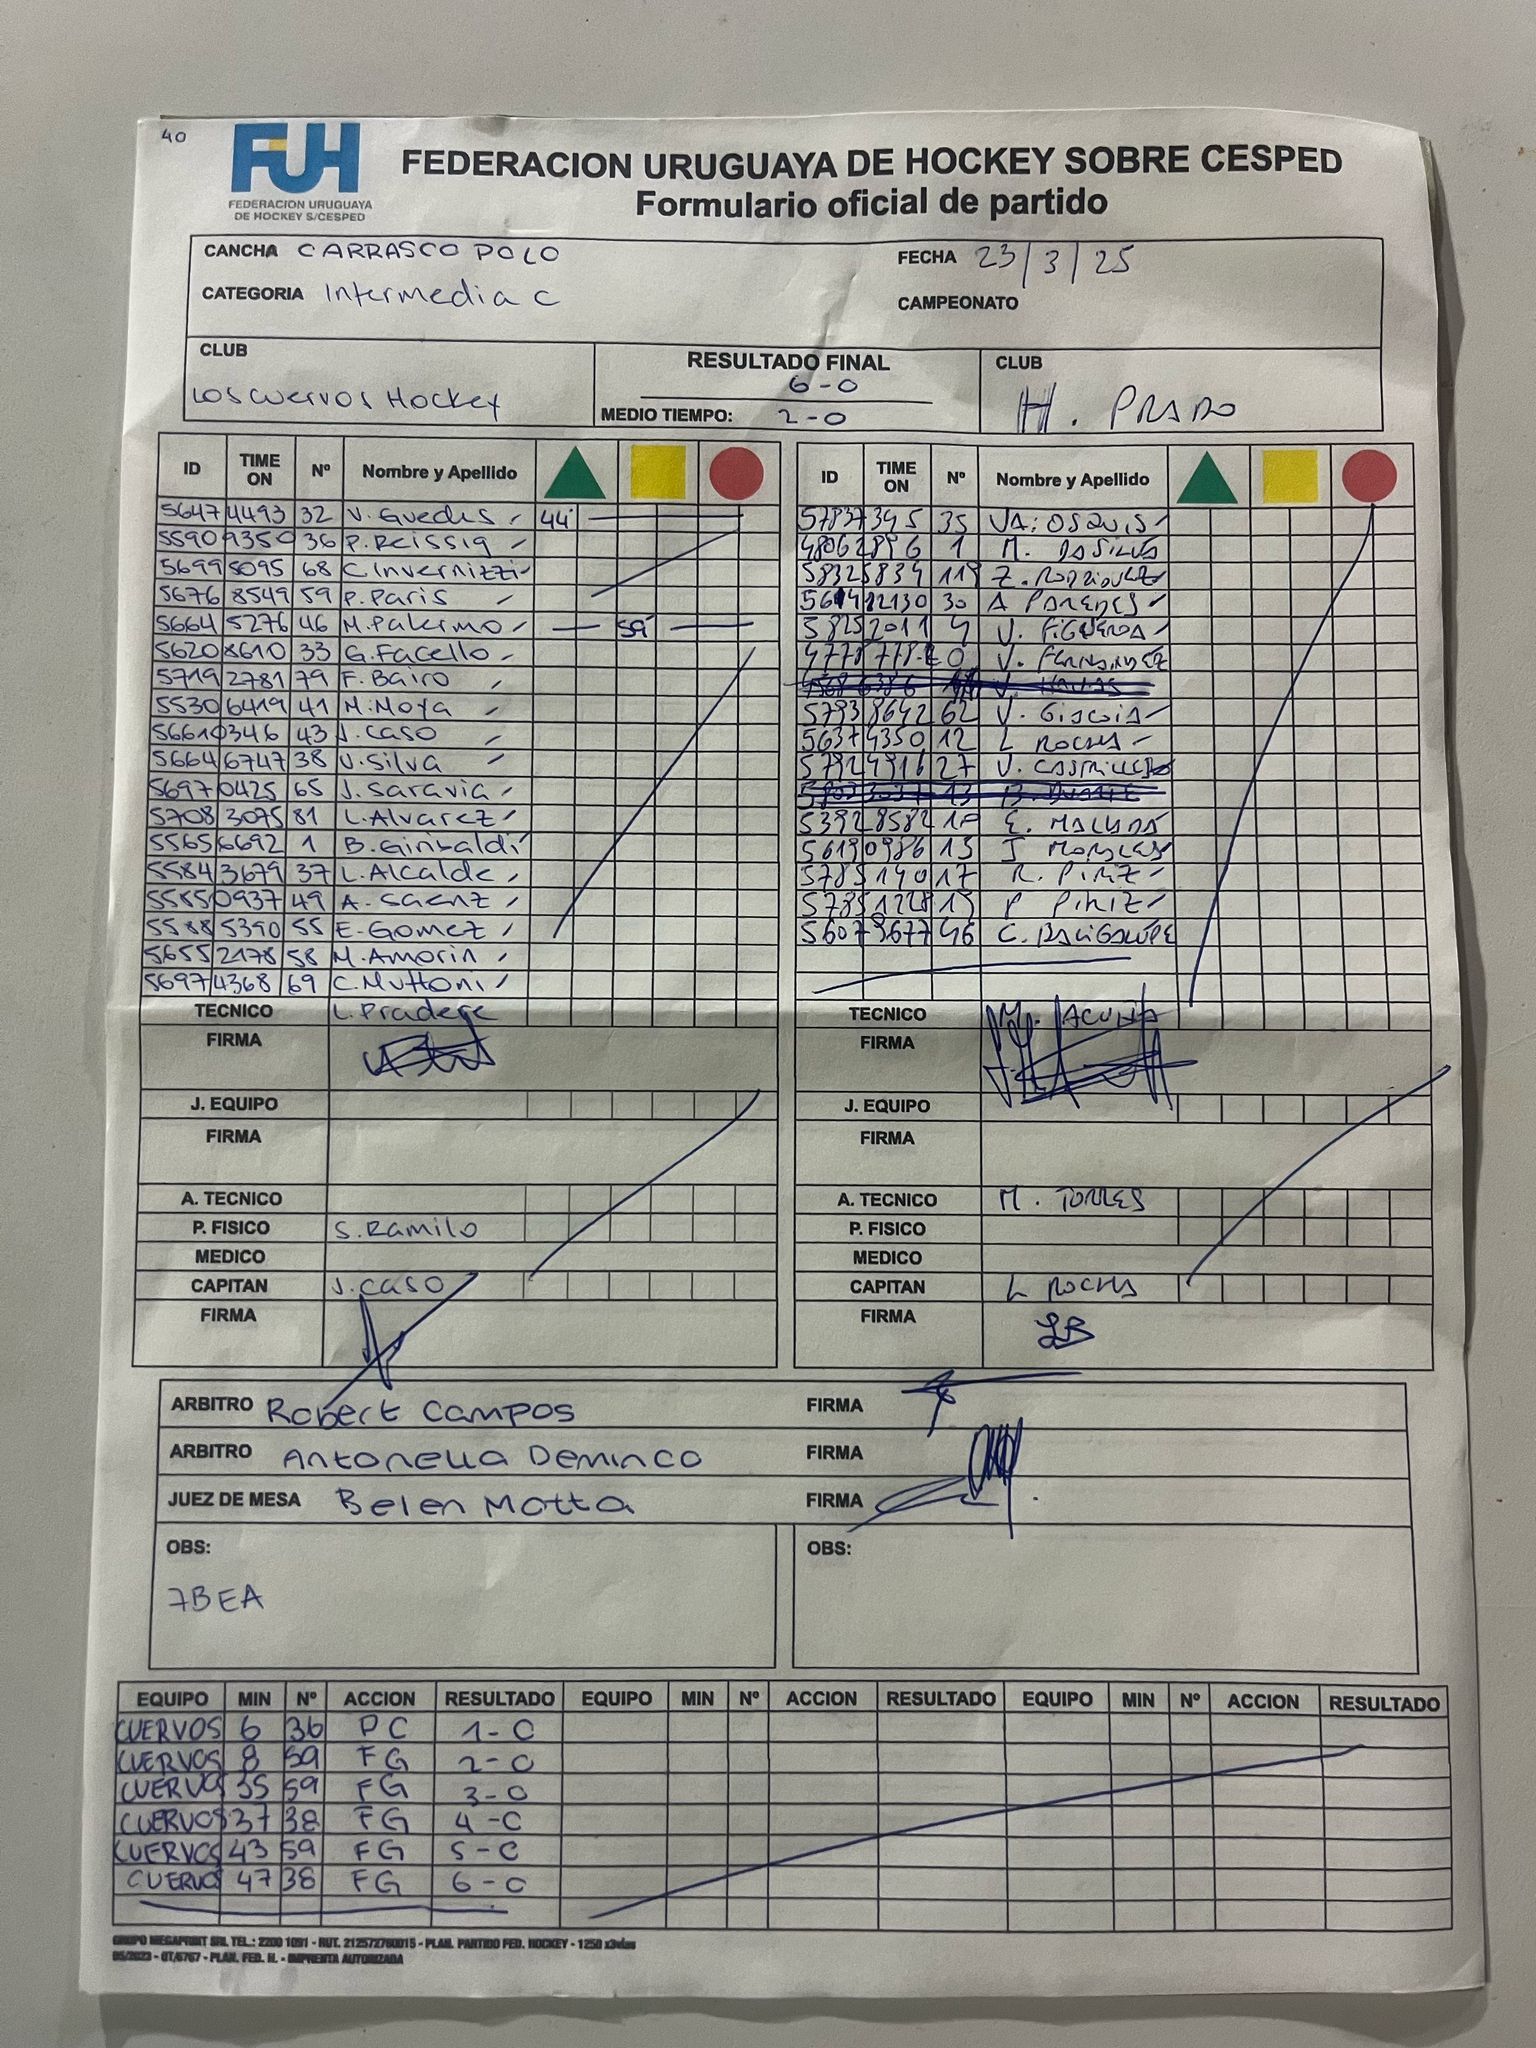 40
FUH
FEDERACION URUGUAYA
DE HOCKEY S/CESPED
FEDERACION URUGUAYA DE HOCKEY SOBRE CESPED
Formulario oficial de partido
CANCHA CARRASCO POLO FECHA 23/3/25
CATEGORIA Intermedia C CAMPEONATO
CLUB RESULTADO FINAL CLUB
Los cuervos Hockey 6-0 H. PRADO
MEDIO TIEMPO: 2-0
ID TIME ON Nº Nombre y Apellido ID TIME ON Nº Nombre y Apellido
5647 4493 32 V. Guedes 44'
5590 9350 36 P. Reissig
5699 5095 68 C. Invernizzi
5676 8549 59 P. Paris
5664 5276 46 M. Palermo 59'
5620 8610 33 G. Facello
5719 2781 79 F. Bairo
5530 6419 41 M. Moya
5661 0346 43 J. Caso
5664 6747 38 V. Silva
5697 0425 65 J. Saravia
5708 3075 81 L. Alvarez
5565 6692 1 B. Giribaldi
5584 3679 37 L. Alcalde
5585 0937 49 A. Saenz
5588 5390 55 E. Gomez
5655 2178 58 M. Amorin
5697 4368 69 C. Muttoni
5783 7345 35
4806 2896 1 M. DASILVA
5832 5834 Z. RODRIGUEZ
30 A PAREDES
5825 2011 4 V. FIGUEROA
V. FERNANDEZ
5793 8642 62 V.
5637 4350 12 L ROCHA
5792 4916 27 V. CASTRILLEJO
5392 8582 E. MACHADO
5619 0986 15 J MORALES
5785 1401 17 R. PIRIZ
5785 1228 19 P PIRIZ
5607 3677 46 C.
TECNICO L. Pradere TECNICO M. ACUÑA
FIRMA FIRMA
J. EQUIPO J. EQUIPO
FIRMA FIRMA
A. TECNICO A. TECNICO M. TORRES
P. FISICO S. Ramilo P. FISICO
MEDICO MEDICO
CAPITAN J. Caso CAPITAN L ROCHA
FIRMA FIRMA
ARBITRO Robert Campos FIRMA
ARBITRO Antonella Deminco FIRMA
JUEZ DE MESA Belen Motta FIRMA
OBS: OBS:
7BEA
EQUIPO MIN Nº ACCION RESULTADO EQUIPO MIN Nº ACCION RESULTADO EQUIPO MIN Nº ACCION RESULTADO
CUERVOS 6 36 PC 1-0
CUERVOS 8 59 FG 2-0
CUERVOS 35 59 FG 3-0
CUERVOS 37 38 FG 4-0
CUERVOS 43 59 FG 5-0
CUERVOS 47 38 FG 6-0
GRUPO MEGAPRINT SRL TEL.: 2200 1091 - RUT. 212572760015 - PLAN. PARTIDO FED. HOCKEY - 1250 x3vías
05/2023 - OT/6767 - PLAN. FED. H. - IMPRENTA AUTORIZADA